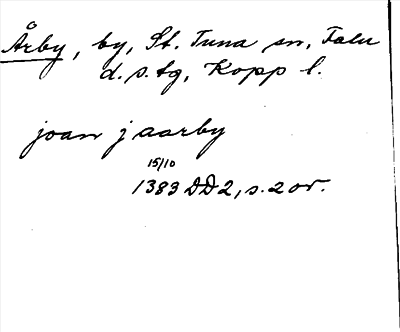 Årby, by, St. Tuna sn, Falu
d.s.tg, Kopp l.
joan j aarby
15/10
1383 DD2, s. 2 or.